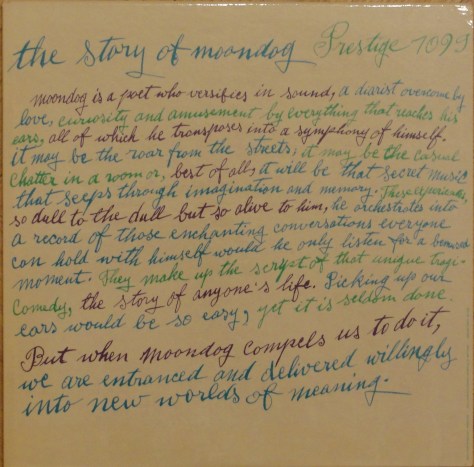 the story of moondog Prestige 1099
moondog is a poet who versifies in sound, a diarist overcome by
love, curiosity and amusement by everything that reaches his
ears, all of which he transposes into a symphony of himself.
it may be the roar from the streets; it may be the casual
chatter in a room or, best of all, it will be that secret music
that seeps through imagination and memory. These experiences,
so dull to the dull but so alive to him, he orchestrates into
a record of those enchanting conversations everyone
can hold with himself would he only listen for a bemused
moment. They make up the script of that unique tragi-
comedy, the story of anyone's life. Picking up our
ears would be so easy, yet it is seldom done.
But when moondog compels us to do it,
we are entranced and delivered willingly
into new worlds of meaning.